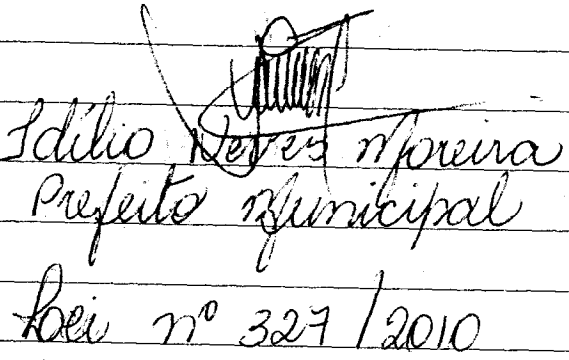 Idílio Neves Moreira
Prefeito Municipal
Lei nº 327/2010